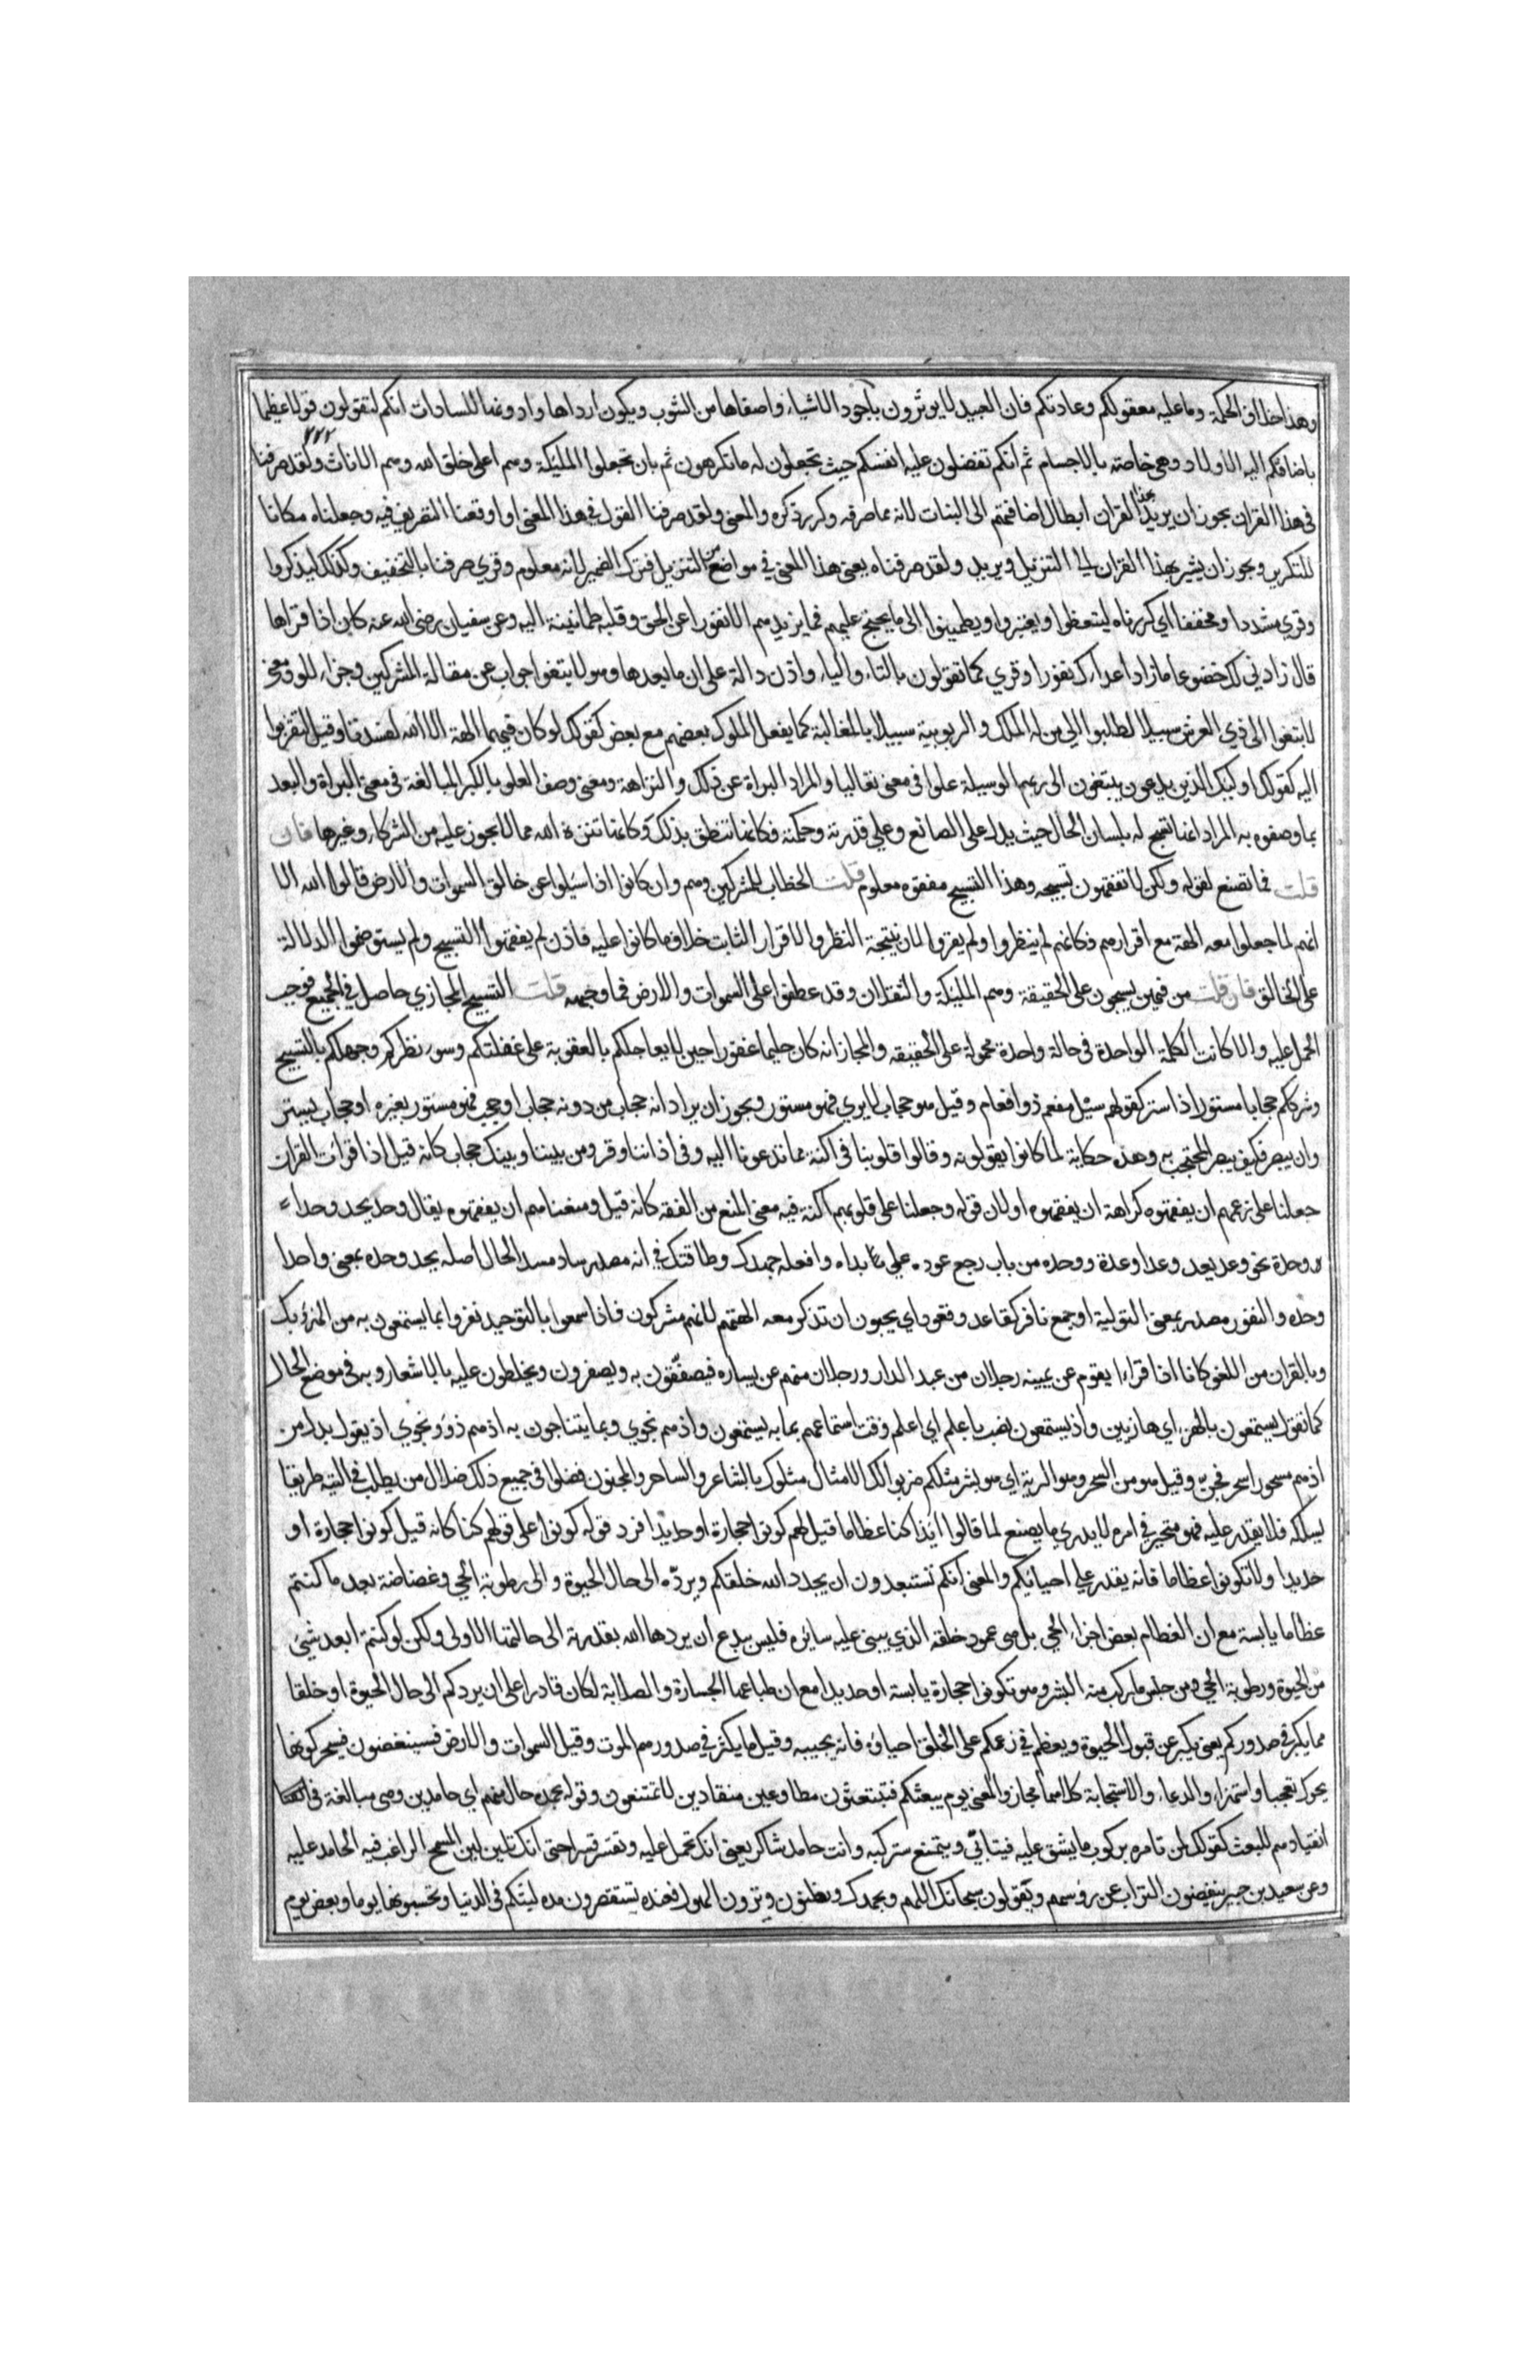 وهذا خلاف الحكمة وما عليه معقولكم وعادتكم فان العبيد لا يوثرون بأجود الاشياء واصفاها من الشوب ويكون ارداها وادونها للسادات انكم لتقولون قولا عظيما
٢٢٢
باضافتكم اليه الاولاد وهي خاصة بالاجسام ثم انكم تفضلون عليه انفسكم حيث تجعلون له ما تكرهون ثم بان تجعلوا المليكة وهم اعلى خلق الله وهم الاناث ولقد صرفنا
في هذا القران يجوز ان يريد بهذا القران ابطال اضافتهم الى البنات لانه مما صرفه وكرر ذكره والمعنى ولقد صرفنا القول في هذا المعنى او اوقعنا التصريف فيه وجعلناه مكانا
للتكرير ويجوز ان يشير بهذا القران الى التنزيل ويريد ولقد صرفناه يعني هذا المعنى في مواضع من التنزيل فترك الضمير لانه معلوم وقري صرفنا بالتخفيف وكذلك ليذكروا
وقري مشددا ومخففا اي كررناه ليتعظوا ويعتبروا ويطمينوا الى ما يحتج عليهم فما يزيدهم الا نفورا عن الحق وقلة طمانينة اليه وعن سفيان رضي الله عنه كان اذا قراها
قال زادني لك خضوعا ما زاد اعداءك نفورا وقري كما تقولون بالتاء والياء واذن دالة على ان ما بعدها وهو لابتغوا جواب عن مقالة المشركين وجزاء للو ومعنى
لابتغوا الى ذي العرش سبيلا لطلبوا الى من له الملك والربوبية سبيلا بالمغالبة كما يفعل الملوك بعضهم مع بعض كقولك لو كان فيهما الهة الا الله لفسدتا وقيل لتقربوا
اليه كقولك اوليك الذين يدعون يبتغون الى ربهم الوسيلة علوا في معنى تعاليا والمراد البراة عن ذلك والنزاهة ومعنى وصف العلو بالكبر المبالغة في معنى البراة والبعد
بما وصفوه به المراد انها تسبح له بلسان الحال حيث يدل على الصانع وعلى قدرته وحكمته فكانها تنطق بذلك وكانها تنزه الله مما لا يجوز عليه من الشركاء وغيرها فان
قلت فما تصنع لقوله ولكن لا تفقهون تسبيحه وهذا التسبيح مفقوه معلوم قلت الخطاب للمشركين وهم وان كانوا اذا سيلوا عن خالق السموات والارض قالوا الله الا
انهم لما جعلوا معه الهة مع اقرارهم فكانهم لم ينظروا ولم يقروا لان نتيجة النظر والاقرار الثابت خلاف ما كانوا عليه فاذن لم يفقهوا التسبيح ولم يستوضحوا الدلالة
على الخالق فان قلت من فيهن يسبحون على الحقيقة وهم المليكة والثقلان وقد عطفوا على السموات والارض فما وجهه قلت التسبيح المجازي حاصل في الجميع فوجب
الحمل عليه والا كانت الكلمة الواحدة في حالة واحدة محمولة على الحقيقة والمجاز انه كان حليما غفورا حين لا يعاجلكم بالعقوبة على غفلتكم وسوء نظركم وجهلكم بالتسبيح
وشرككم حجابا مستورا ذا ستر كقولهم سيل مفعم ذو افعام وقيل هو حجاب لا يرى فهو مستور ويجوز ان يراد انه حجاب من دونه حجاب او حجب فهو مستور بغيره او حجاب يستر
وان يبصر فكيف يبصر المحتجب به وهذه حكاية لما كانوا يقولونه وقالوا قلوبنا في اكنة مما تدعونا اليه وفي اذاننا وقر ومن بيننا وبينك حجاب كانه قيل اذا قرأت القران
جعلنا على زعمهم ان يفقهوه كراهة ان يفقهوه او لان قوله وجعلنا على قلوبهم اكنة فيه معنى المنع من الفقه كانه قيل ومنعناهم ان يفقهوه يقال وحد يحد وحدا
وحدة نحو وعد يعد وعدا وعدة ووحده من باب رجع عوده على بداه وافعله جهدك وطاقتك في انه مصدر ساد مسد الحال اصله يحد وحده بمعنى واحدا
وحده والنفور مصدر بمعنى التولية او جمع نافر كقاعد وقعود اي يحبون ان تذكر معه الهتهم لانهم مشركون فاذا سمعوا بالتوحيد نفروا بما يستمعون به من الهزء بك
وبالقران من اللغو كان اذا قراء يقوم عن يمينه رجلان من عبد الدار ورجلان منهم عن يساره فيصفقون به ويصفرون ويخلطون عليه بالاشعار وبه في موضع الحال
كما تقول يستمعون بالهزء اي هازيين واذ يستمعون نصب باعلم اي اعلم وقت استماعهم بما به يستمعون واذ هم نجوى وبما يتناجون به اذ هم ذوو نجوى اذ يقول بدل من
اذ هم مسحورا سحر فجن وقيل هو من السحر وهو الرية اي هو بشر مثلكم ضربوا لك الامثال مثلوك بالشاعر والساحر والمجنون فضلوا في جميع ذلك ضلال من يطلب في التيه طريقا
يسلكه فلا يقدر عليه فهو متحير في امره لا يدري ما يصنع لما قالوا ائذا كنا عظاما قيل لهم كونوا حجارة او حديدا فرد قوله كونوا على قولهم كنا كانه قيل كونوا حجارة او
حديدا ولا تكونوا عظاما فانه يقدر على احيايكم والمعنى انكم تستبعدون ان يجدد الله خلقكم ويرده الى حال الحيوة والى رطوبة الحي وغضاضة بعد ما كنتم
عظاما يابسة مع ان العظام بعض اجزاء الحي بل هي عمود خلقه الذي يبنى عليه سائره فليس ببدع ان يردها الله بقدرته الى حالتها الاولى ولكن لو كنتم ابعد شيء
من الحيوة ورطوبة الحي ومن جنس ما ركب منه البشر وهو تكونوا حجارة يابسة او حديدا مع ان طباعها الجسارة والصلابة لكان قادرا على ان يردكم الى حال الحيوة او خلقا
مما يكبر في صدوركم يعني يكبر عن قبول الحيوة ويعظم في زعمكم على الخلق احياؤه فانه يحييه وقيل ما يكبر في صدورهم الموت وقيل السموات والارض فسينغضون فيحركونها
يحرك تعجبا واستهزاء والدعاء والاستجابة كلاهما مجاز والمعنى يوم يبعثكم فتبتعثون مطاوعين منقادين لا تمتنعون وقوله بحمده حال منهم اي حامدين وهي مبالغة في
انقيادهم للبعث كقولك لمن تامره بركوب ما يشق عليه فيتابى ويتمنع ستركبه وانت حامد شاكر يعني انك تحمل عليه وتقسر قسرا حتى انك تلين لين السمح الراغب فيه الحامد عليه
وعن سعيد بن جبير ينفضون التراب عن رؤسهم ويقولون سبحانك اللهم وبحمدك وتظنون وترون الهول فعنده تستقصرون مدة لبثكم في الدنيا وتحسبونها يوما او بعض يوم